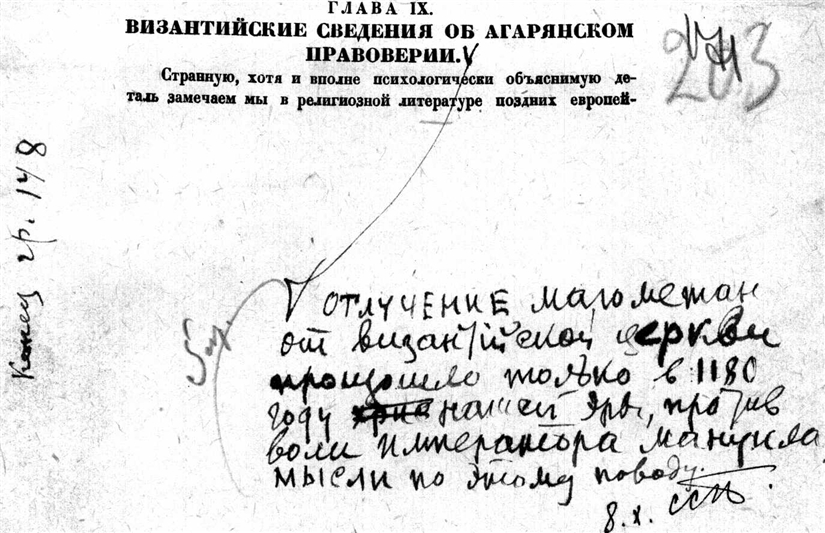 ГЛАВА IX.
ВИЗАНТИЙСКИЕ СВЕДЕНИЯ ОБ АГАРЯНСКОМ
ПРАВОВЕРИИ.
Странную, хотя и вполне психологически объяснимую де-
таль замечаем мы в религиозной литературе поздних европей-
Конец гр. 148
ОТЛУЧЕНИЕ магометан
от византийской церкви
произошло только в 1180
году нашей эры, против
воли императора Мануила,
мысли по этому поводу.
8.X.